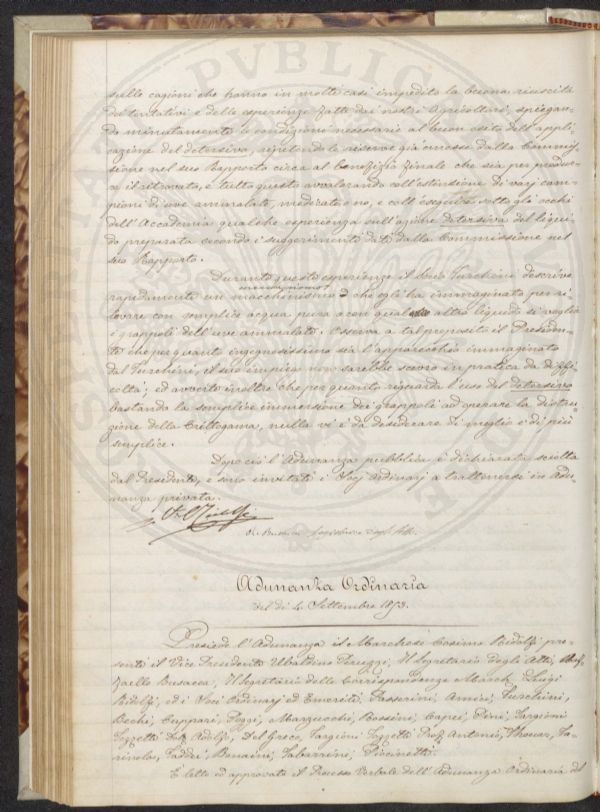 sulle cagioni che hanno in molti casi impedito la buona riuscita
dei tentativi e delle esperienze fatte dai nostri Agricoltori, spiegan-
do minutamente le condizioni necessarie al buon esito dell'appli-
cazione del detersivo, ripetendo le riserve già emesse dalla Commis-
sione nel suo Rapporto circa al benefizio finale che sia per produr-
re il ritrovato, e tutto questo avvalorando coll'ostensione di varj cam-
pioni di uve ammalate, medicate e no, e coll'eseguire sotto gli occhi
dell'Accademia qualche esperienza sull'azione detersiva del liqui-
do preparato secondo i suggerimenti dati dalla Commissione nel
suo Rapporto.
Durante queste esperienze il Socio Turchini descrive
rapidamente un macchinismo che egli ha immaginato per ri-
lavare con semplice acqua pura o con qual altro liquido si voglia
i grappoli dell'uve ammalate. Osserva a tal proposito il Presiden-
te che per quanto ingegnosissimo sia l'apparecchio immaginato
dal Turchini, il suo impiego non sarebbe scevro in pratica da diffi-
coltà; ed avverte inoltre che per quanto riguarda l'uso del detersivo
bastando la semplice immersione dei grappoli ad operare la distru-
zione della Crittogama, nulla vi è da desiderare di meglio e di più
semplice.
Dopo ciò l'Adunanza pubblica è dichiarata sciolta
dal Presidente, e sono invitati i Socj Ordinarj a trattenersi in Adu-
nanza privata.
R. Busacca Segretario degli Atti
Adunanza Ordinaria
del dì 4. Settembre 1853.
Presiede l'Adunanza il Marchese Cosimo Ridolfi pre-
senti il Vice Presidente Ubaldino Peruzzi, Il Segretario degli Atti, Raf-
faello Busacca, Il Segretario delle Corrispondenze March. Luigi
Ridolfi, ed i Soci Ordinarj ed Emeriti. Passerini, Amici, Turchini,
Bechi, Cuppari, Poggi, Marzucchi, Rossini, Capei, Pini, Targioni
Tozzetti Dott. Adolfo, Del Greco, Targioni Tozzetti Prof. Antonio, Thouar, Fa-
rinola, Taddei, Bonaini, Tabarrini, Piccinetti.
È letto ed approvato il Processo Verbale dell'Adunanza Ordinaria del